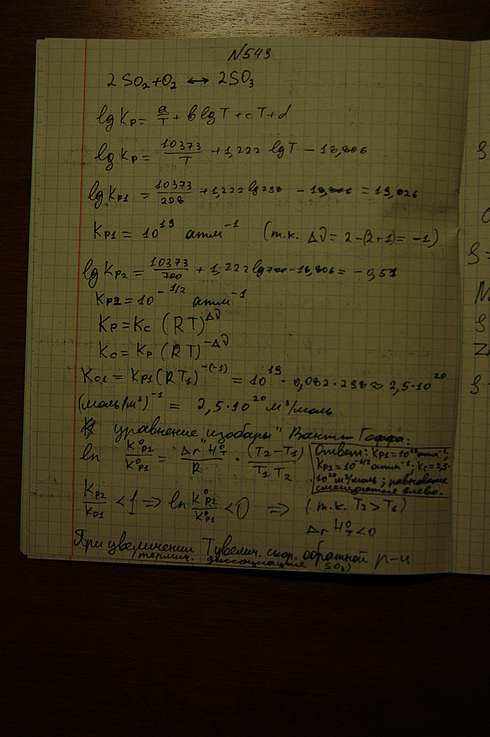 N543
2SO₂+O₂ ↔ 2SO₃
lg Kp = a/T + b lg T + cT + d
lg Kp = 10373/T + 1,222 lg T − 18,806
lg Kp1 = 10373/298 + 1,222 lg 298 − 18,806 = 19,026
Kp1 = 10¹⁹ атм⁻¹ (т.к. Δν = 2−(2+1) = −1)
lg Kp2 = 10373/700 + 1,222 lg 700 − 18,806 = −0,51
Kp2 = 10^(−1/2) атм⁻¹
Kp = Kc (RT)^Δν
Kc = Kp (RT)^−Δν
Kc1 = Kp1 (RT₁)^−(−1) = 10¹⁹ · 0,082 · 298 ≈ 2,5·10²⁰
(моль/м³)⁻¹ = 2,5·10²⁰ м³/моль
уравнение изобары" Вант Гоффа:
ln K°p2/K°p1 = ΔrH°T/R · (T₂−T₁)/T₁T₂
Ответ: Kp1 = 10¹⁹ атм⁻¹;
Kp2 = 10^(−1/2) атм⁻¹; Kc = 2,5·
10²⁰ м³/моль; равновесие
смещается влево.
Kp2/Kp1 < 1 ⇒ ln K°p2/K°p1 < 0 ⇒ (т.к. T₂ > T₁)
ΔrH°T < 0
При увеличении T увелич. скор. обратной р-и
(термич. диссоциация SO₃)